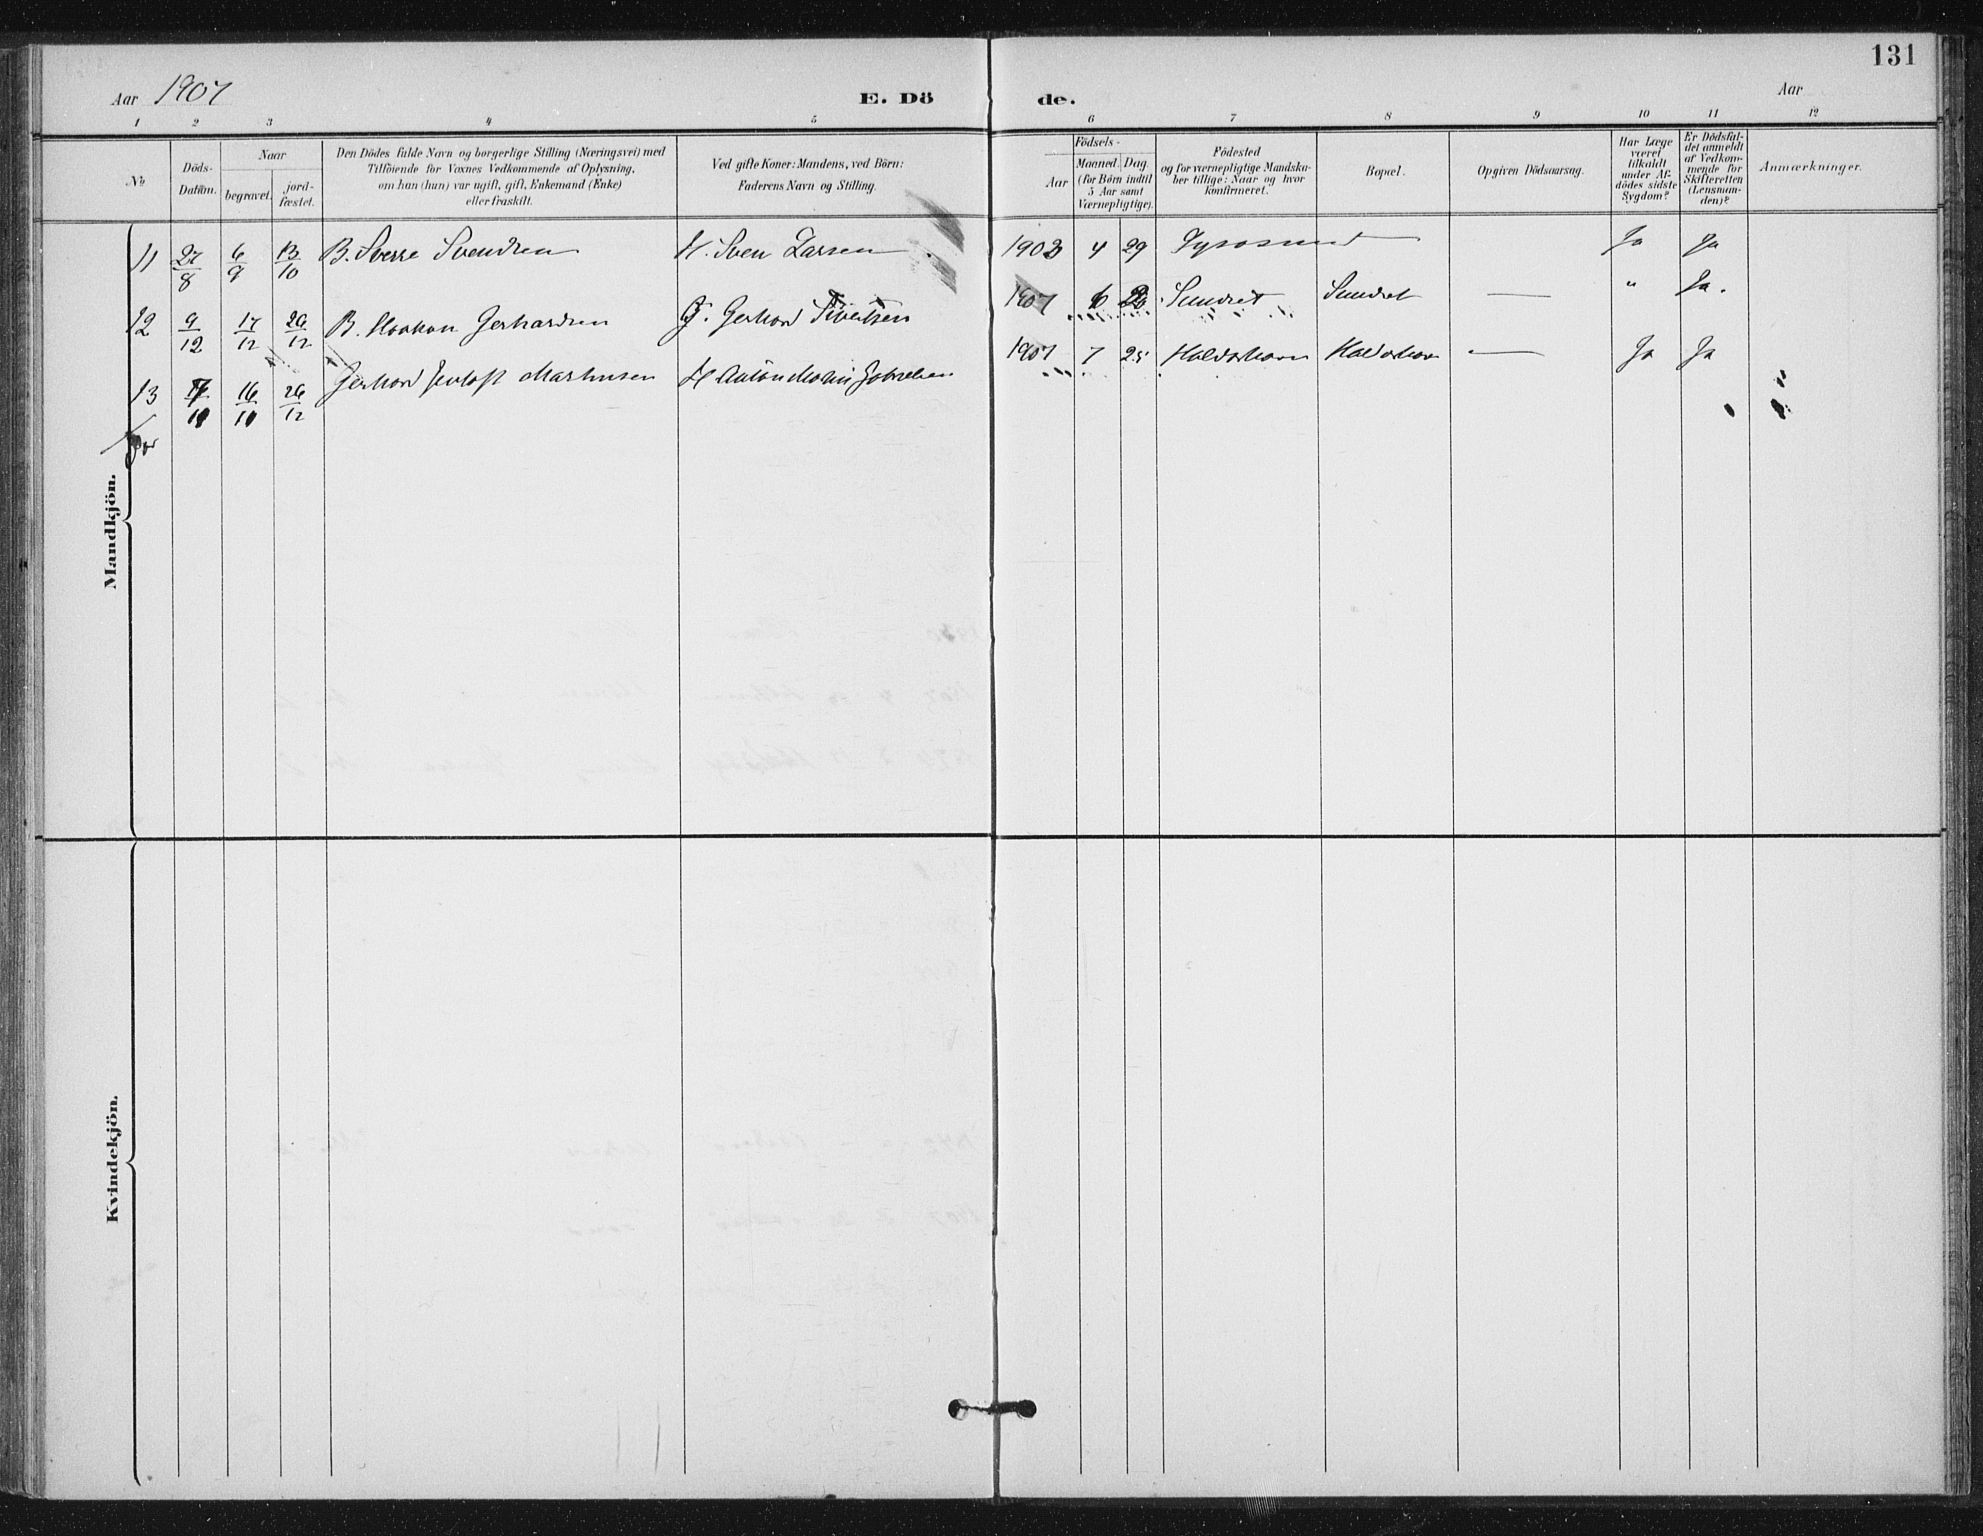 131
Aar 1907 E. Dö de. Aar
1 2 3 4 5 6 7 8 9 10 11 12
No
Döds-
Datum.
Naar
begravet.
jord-
fæstet.
Den Dödes fulde Navn og borgerlige Stilling (Næringsvei) med
Tilföiende for Voxnes Vedkommende af Oplysning,
om han (hun) var ugift, gift, Enkemand (Enke)
eller fraskilt.
Ved gifte Koner: Mandens, ved Börn:
Faderens Navn og Stilling.
Födsels-
Aar
Maaned. Dag.
(for Börn indtil
5 Aar samt
Værnepligtige).
Födested
og for værnepligtige Mandska-
ber tillige: Naar og hvor
konfirmeret.
Bopæl.
Opgiven Dödsaarsag.
Har Læge
været
tilkaldt
under Af-
dödes sidste
Sygdom?
Er Dödsfal-
det anmeldt
af Vedkom-
mende for
Skifteretten
(Lensman-
den)?
Anmærkninger.
11 27/8 6/9 13/10 B. Sverre Svendsen Sven Larsen 1903 4 29 Ja Ja
12 9/12 17/12 26/12 B. Haakon Gerhardsen Gerhard Sivertsen 1907 6 Sundset Sundset — " Ja.
13 16/10 26/12 Gerhard Markusen Anton 1907 7 25 — Ja Ja
Mandkjön.
Kvindekjön.